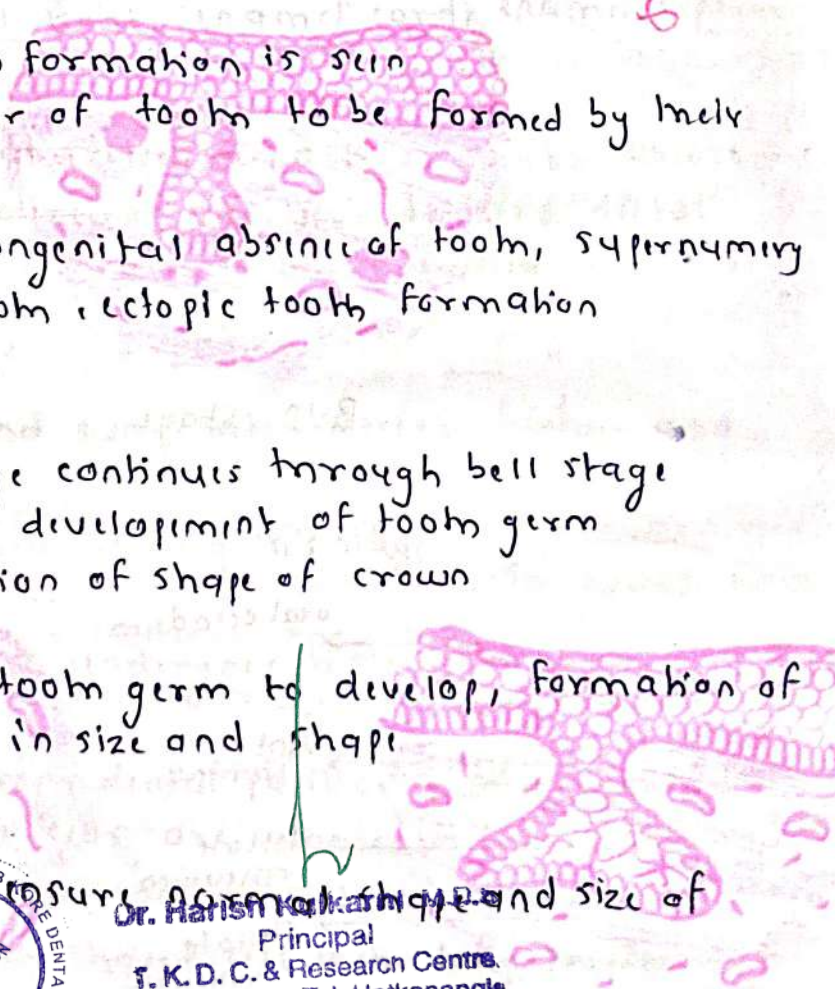 formation is seen
r of tooth to be formed by their
ngenital absence of tooth, supernumery
oth, ectopic tooth formation
e continues through bell stage
developement of tooth germ
ion of shape of crown
tooth germ to develop, formation of
in size and shape
normal shape and size of
Dr. Harish Kulkarni M.D.S
Principal
T. K. D. C. & Research Centre,
ORE DENTA